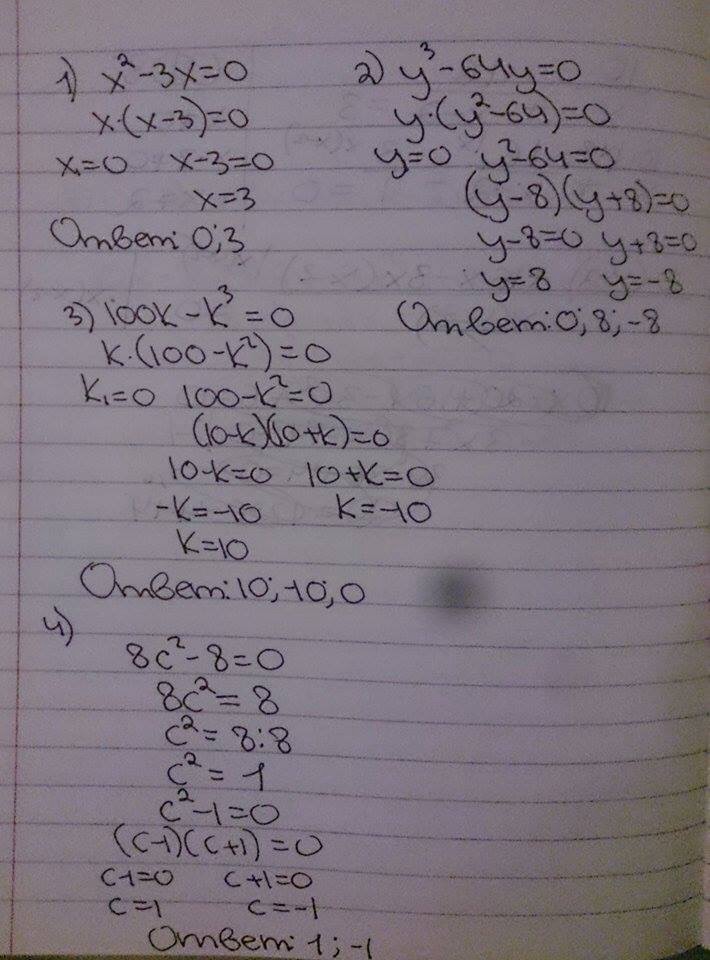 1) x²-3x=0
x·(x-3)=0
x₁=0 x-3=0
x=3
Ответ: 0;3
2) y³-64y=0
y·(y²-64)=0
y=0 y²-64=0
(y-8)(y+8)=0
y-8=0 y+8=0
y=8 y=-8
Ответ: 0; 8; -8
3) 100k-k³=0
k·(100-k²)=0
k₁=0 100-k²=0
(10-k)(10+k)=0
10-k=0 10+k=0
-k=-10 k=-10
k=10
Ответ: 10; -10; 0
4)
8c²-8=0
8c²=8
c²=8:8
c²=1
c²-1=0
(c-1)(c+1)=0
c-1=0 c+1=0
c=1 c=-1
Ответ: 1; -1